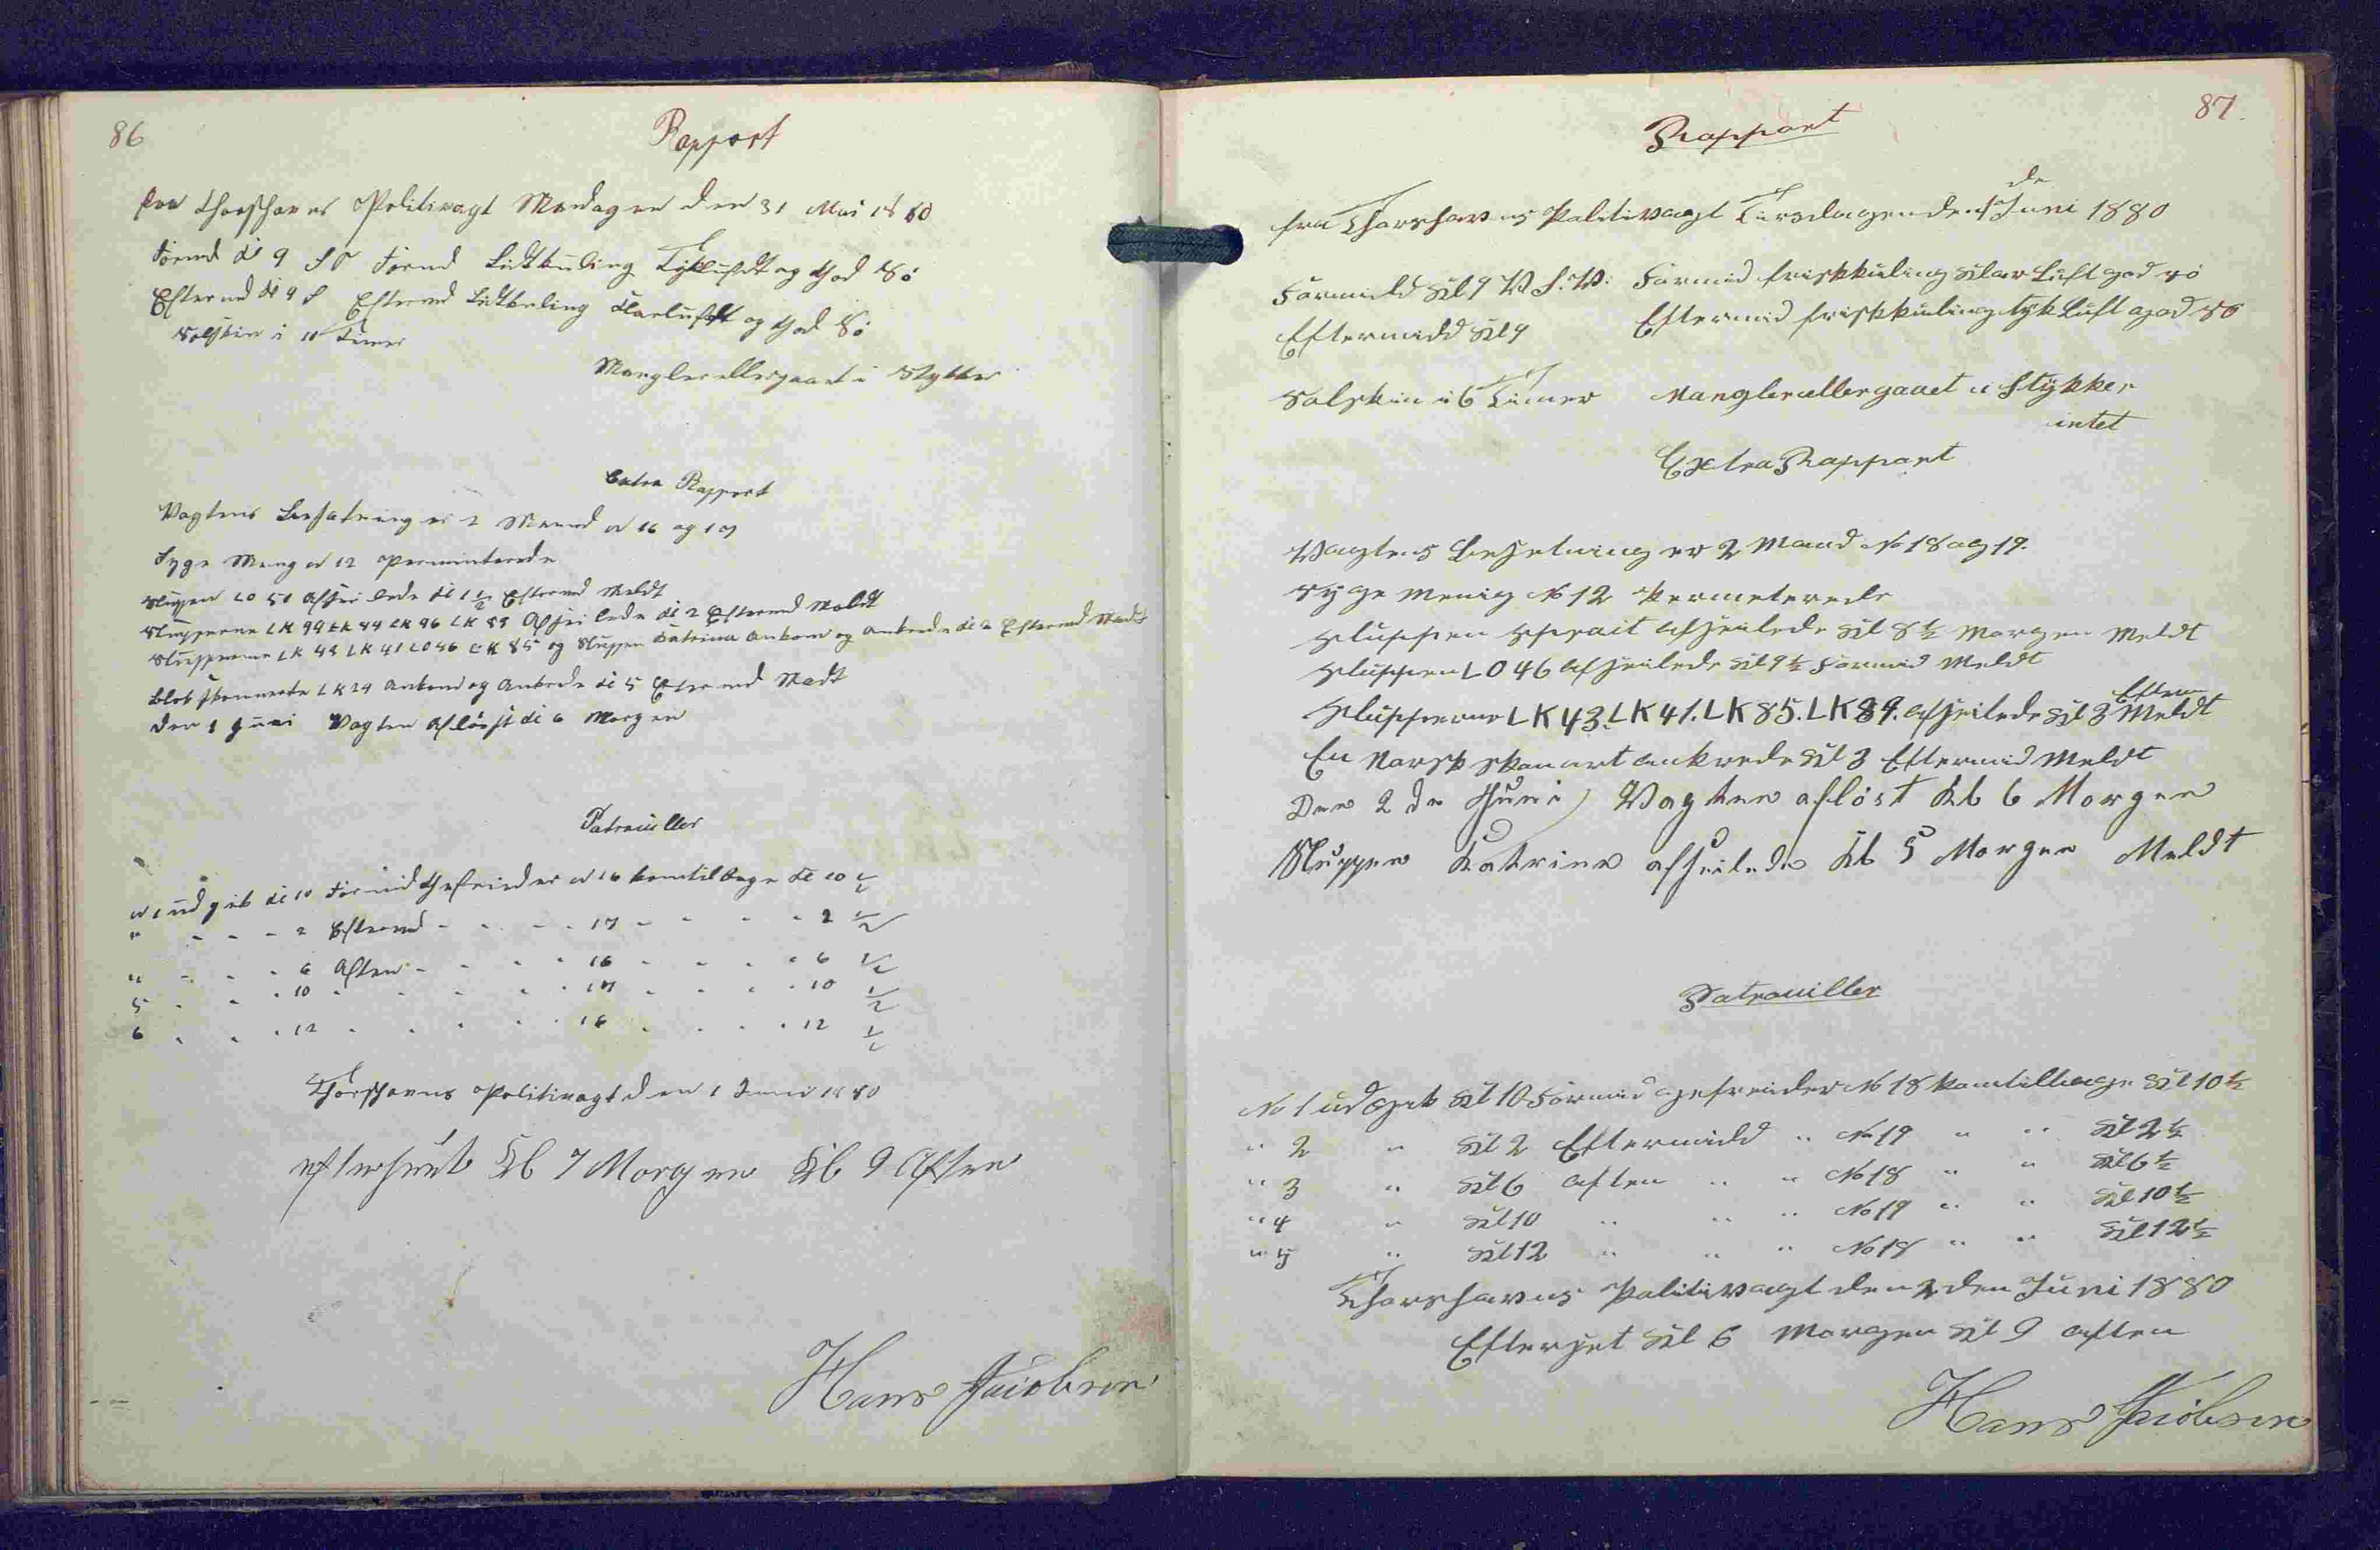 86
Rapport
fra Thorshavns Politivagt Mandagen den 31 Mai 1880
Formd Kl 9 S O Formd Lidtkuling Tykluft og God Sö
Eftermd Kl 9 S Eftermd Lidtkuling Klarluft og God Sö
Solskin i 10 Timer
Mangler ellergaaet i Stykker
Extra Rapport
Vagtens Besatning er 2 Mand N 16 og 17
Syge Meng N 12 Perminterede
Sluppen LO 50 Afseilede Kl 1 1/2 Eftermd Meldt
Slupperne LK 99 LK 44 LK 96 LK 88 Afseilede Kl 2 Eftermd Meldt
Slupperne LK 43 LK 41 LO 46 LK 85 og Sluppen Katrina Ankom og Ankrede Kl 2 Eftermd Meldt
Skonnerte LK 29 Ankom og Ankrede Kl 5 Eftermd Meldt
Den 1 Juni Vagten Aflöst Kl 6 Morgen
Patrouiller
N 1 udgik Kl 10 Formid Gefreider N 16 kom tilbage Kl 10 1/2
" - - - 2 Eftermd - - - - 17 - - - - 2 1/2
" - - - 6 Aften - - - - 16 - - - - 6 1/2
5 - - - 10 - - - - 17 - - - - 10 1/2
6 - - - 12 - - - - 16 - - - - 12 1/2
Thorshavns Politivagt den 1 Juni 1880
efterseet Kl 7 Morgen Kl 9 Aften
Hans Jacobsen
87.
Rapport
fra Thorshavns Politivagt Tirsdagen den 1 de Juni 1880
Formidd Kl 9 V.S.V. Formid friskkuling klar Luft god sö
Eftermidd Kl 9 Eftermid friskkuling tyk Luft god Sö
Solskin i 6 Timer Mangler eller gaaet i Stykker
intet
Extra Rapport
Vagtens Besetning er 2 Mand No 18 og 19.
Syge Menig No 12 Permeterede
Sluppen Sprait afseilede Kl 8 1/2 Morgen Meldt
Sluppen LO 46 afseilede Kl 9 1/2 Formid Meldt
Slupperne LK 43. LK 41. LK 85. LK 89. afseilede Kl 3 Efterm Meldt
En Norsk Skonart ankrede Kl 3 Eftermid Meldt
Den 2 de Juni Vagten aflöst Kl 6 Morgen
Sluppen Katrine afseilede Kl 5 Morgen Meldt
Patrouiller
No 1 udgik Kl 10 Formid gefreider No 18 kom tilbage Kl 10 1/2
" 2 " Kl 2 Eftermidd " No 19 " " Kl 2 1/2
" 3 " Kl 6 aften " " No 18 " " Kl 6 1/2
" 4 " Kl 10 " " " No 19 " " Kl 10 1/2
" 5 " Kl 12 " " " No 18 " " Kl 12 1/2
Thorshavns Politivagt den 2 den Juni 1880
Efterset Kl 6 Morgen Kl 9 aften
Hans Jacobsen